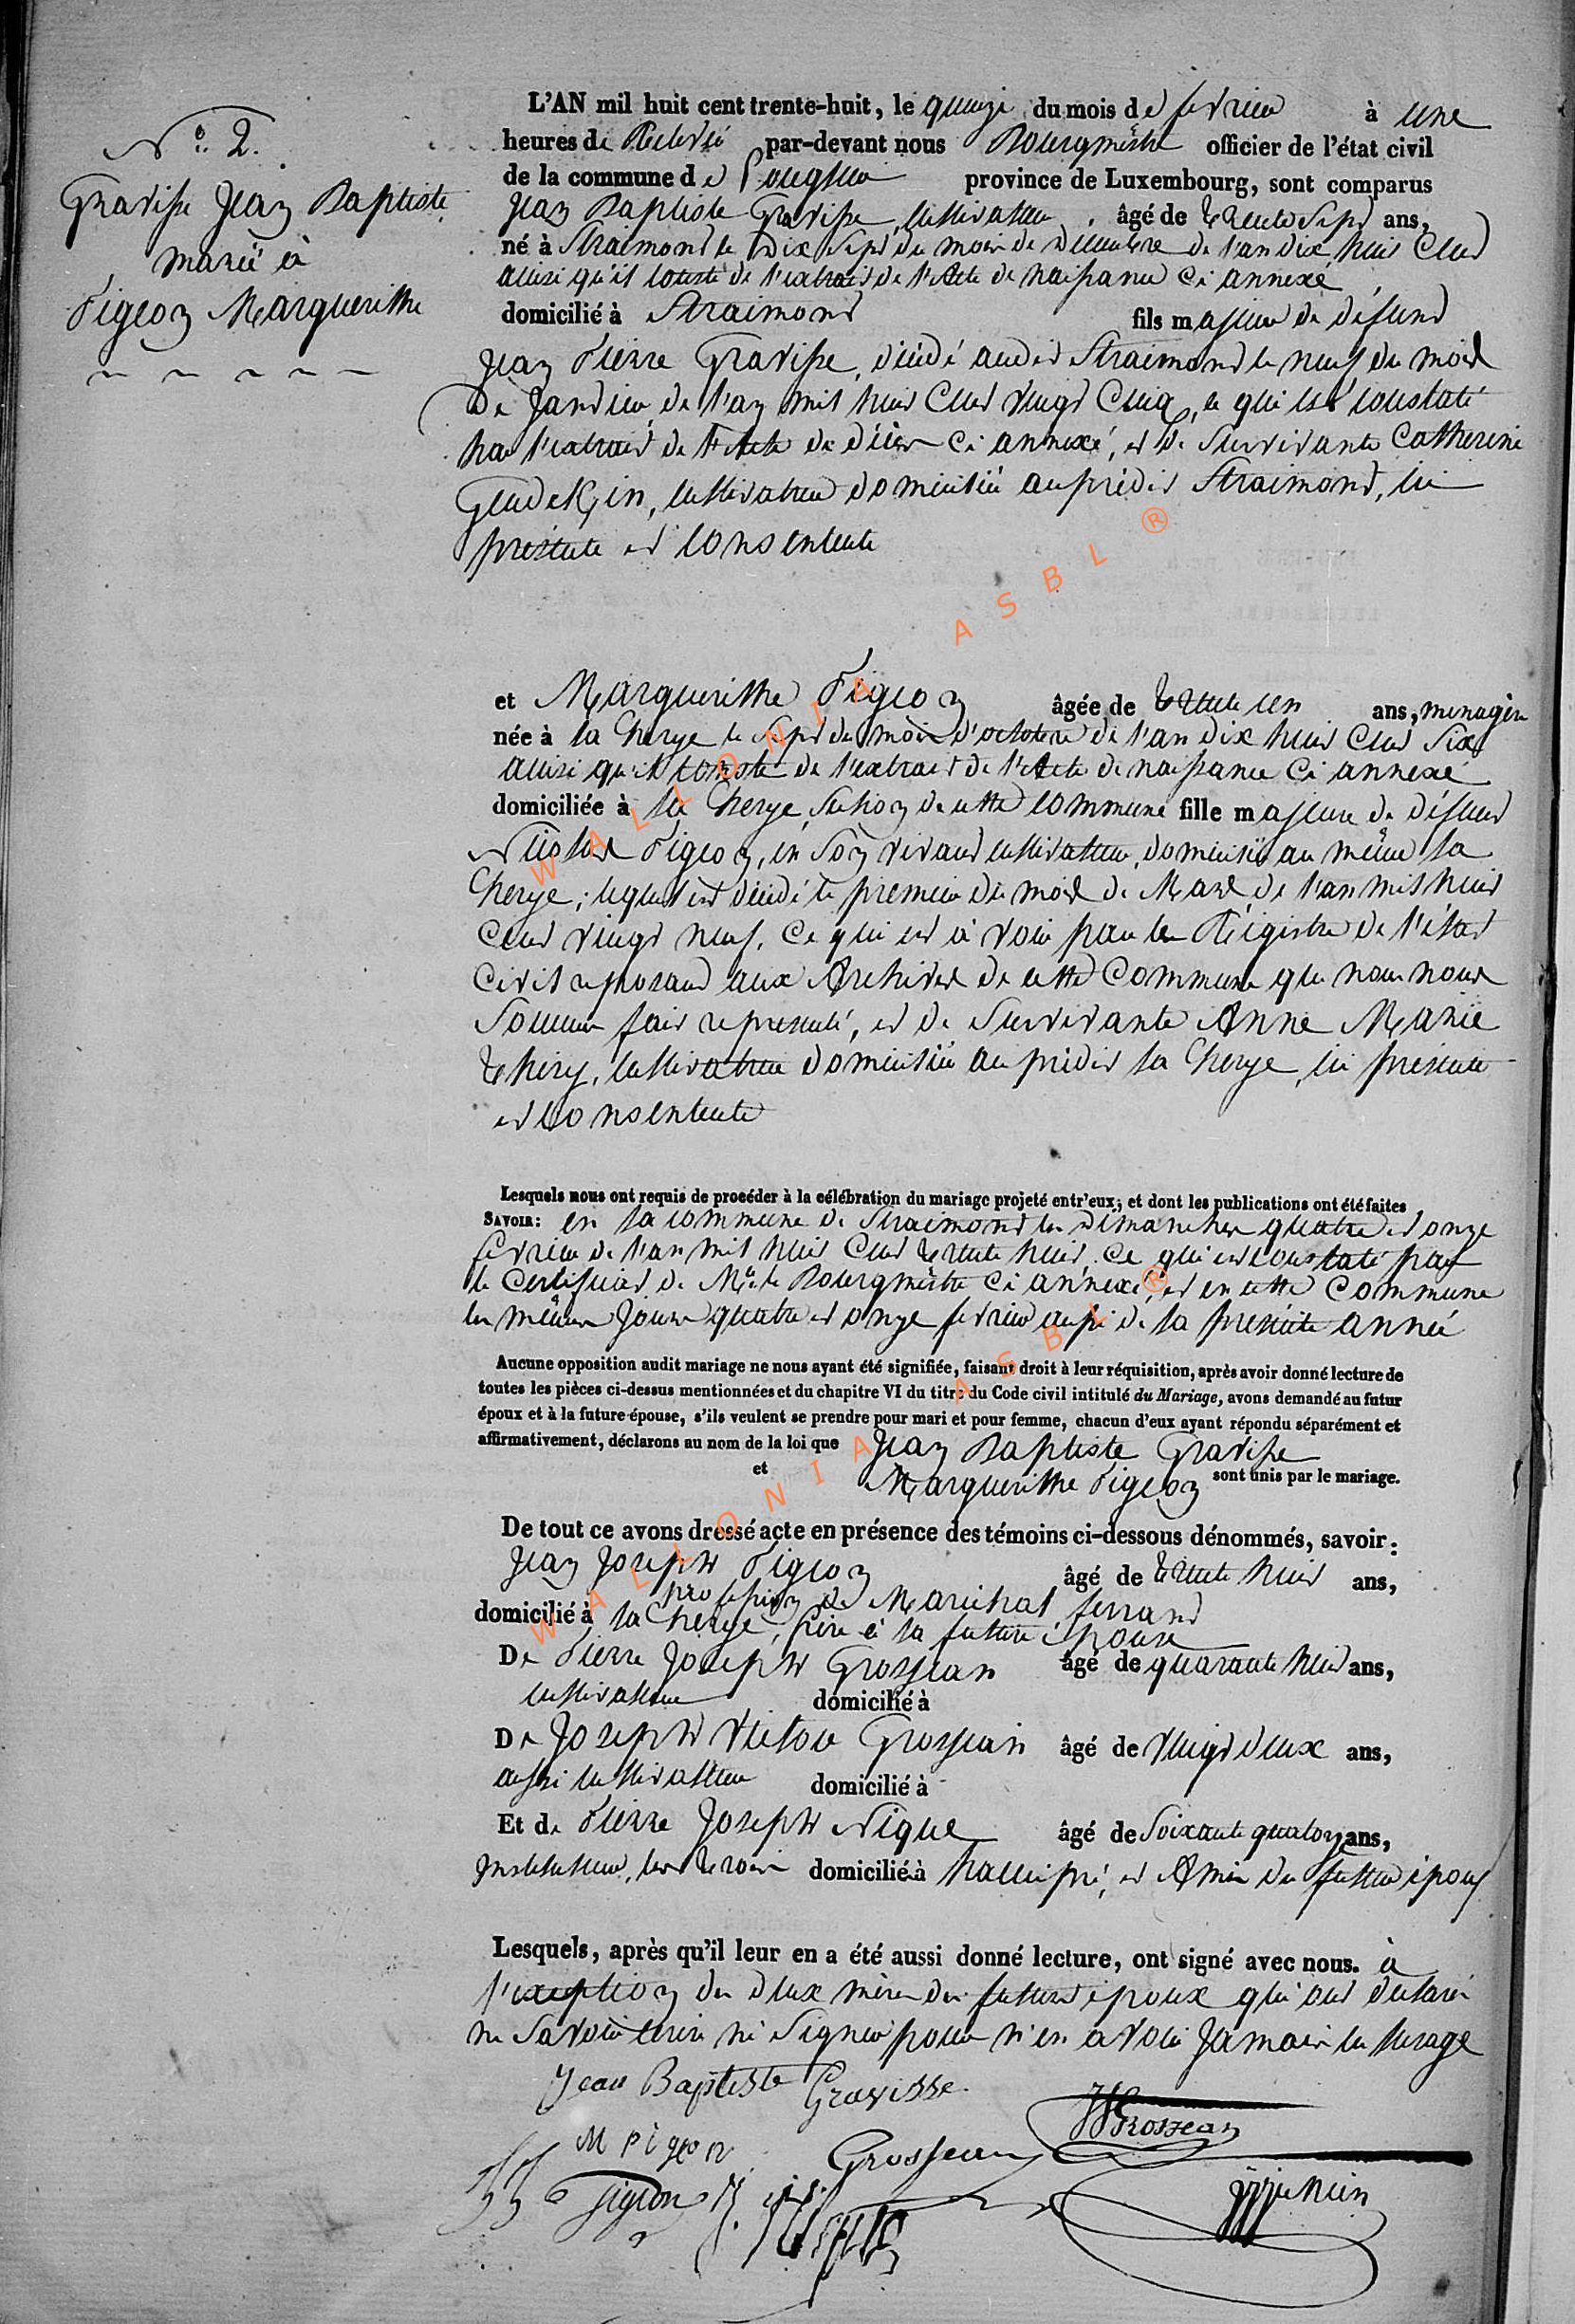 N° 2.
Gravisse Jean Baptiste
marié à
Pigeon Marguerithe
L'AN mil huit cent trente-huit, le quinze du mois de février à une
heures de Relevé par-devant nous Bourgmestre officier de l'état civil
de la commune de province de Luxembourg, sont comparus
Jean Baptiste Gravisse, cultivateur, âgé de trente sept ans,
né à Straimont le dix sept du mois de décembre de l'an dix huit cent
ainsi qu'il conste de l'extrait de l'Acte de naissance ci annexé,
domicilié à Straimont fils majeur de défunt
Jean Pierre Gravisse, décédé audit Straimont le neuf du mois
De Janvier de l'an mil huit Cent vingt Cinq, ce qui est constaté
par l'extrait de l'Acte de décès ci annexé, et de survivante Catherine
cultivatrice domiciliée au prédit Straimont, ici
présente et consentente
et Marguerithe Pigeon âgée de trente un ans, menagère
née à la Cherge le sept du mois d'octobre de l'an dix huit Cent Six
ainsi qu'il conste de l'extrait de l'Acte de naissance ci annexé
domiciliée à la Cherge, Section de cette commune fille majeure de défunt
Nicolas Pigeon, en son vivant cultivateur, domicilié au même la
Cherge; lequel est décédé le premier du mois de Mars de l'an mil huit
Cent vingt neuf, Ce qui est à voir par les Régistre de l'état
Civil reposant aux Archives de cette Commune que nous nous
Sommes fait representé, et de Survivante Anne Marie
Thiry, cultivatrice domiciliée au prédit la Cherge, ici présente
et consentente
Lesquels nous ont requis de procéder à la célébration du mariage projeté entr'eux; et dont les publications ont été faites
SAVOIR: en la commune de Straimont les Dimanches quatre et onze
février de l'an mil huit Cent trente huit, Ce qui est constaté par
le Certificat de Mr. le Bourgmestre ci annexé, et en cette Commune
les mêmes Jours quatre et onze février aussi de la presente année
Aucune opposition audit mariage ne nous ayant été signifiée, faisant droit à leur réquisition, après avoir donné lecture de
toutes les pièces ci-dessus mentionnées et du chapitre VI du titre du Code civil intitulé du Mariage, avons demandé au futur
époux et à la future épouse, s'ils veulent se prendre pour mari et pour femme, chacun d'eux ayant répondu séparément et
affirmativement, déclarons au nom de la loi que Jean Baptiste Gravisse
et Marguerithe Pigeon sont unis par le mariage.
De tout ce avons dressé acte en présence des témoins ci-dessous dénommés, savoir:
Jean Joseph Pigeon âgé de trente huit ans,
profession de Maréchal ferrand
domicilié à la Cherge, frère à la future épouse
De Pierre Joseph Grosjean âgé de quarante huit ans,
cultivateur domicilié à
De Joseph Victor Grosjean âgé de vingt deux ans,
aussi cultivateur domicilié à
Et de Pierre Joseph Nique âgé de Soixante quatorze ans,
Instituteur, les trois domicilié à et Amis du futur époux
Lesquels, après qu'il leur en a été aussi donné lecture, ont signé avec nous. à
l'exeption des deux mères des futurs époux qui ont déclaré
ne savoir écrire ni Signer pour n'en avoir Jamais eu l'usage
Jean Baptiste Gravisse.
JVGrosjean
M Pigeon
Grosjean
Pigeon
WALLONIA ASBL ®
WALLONIA ASBL ®